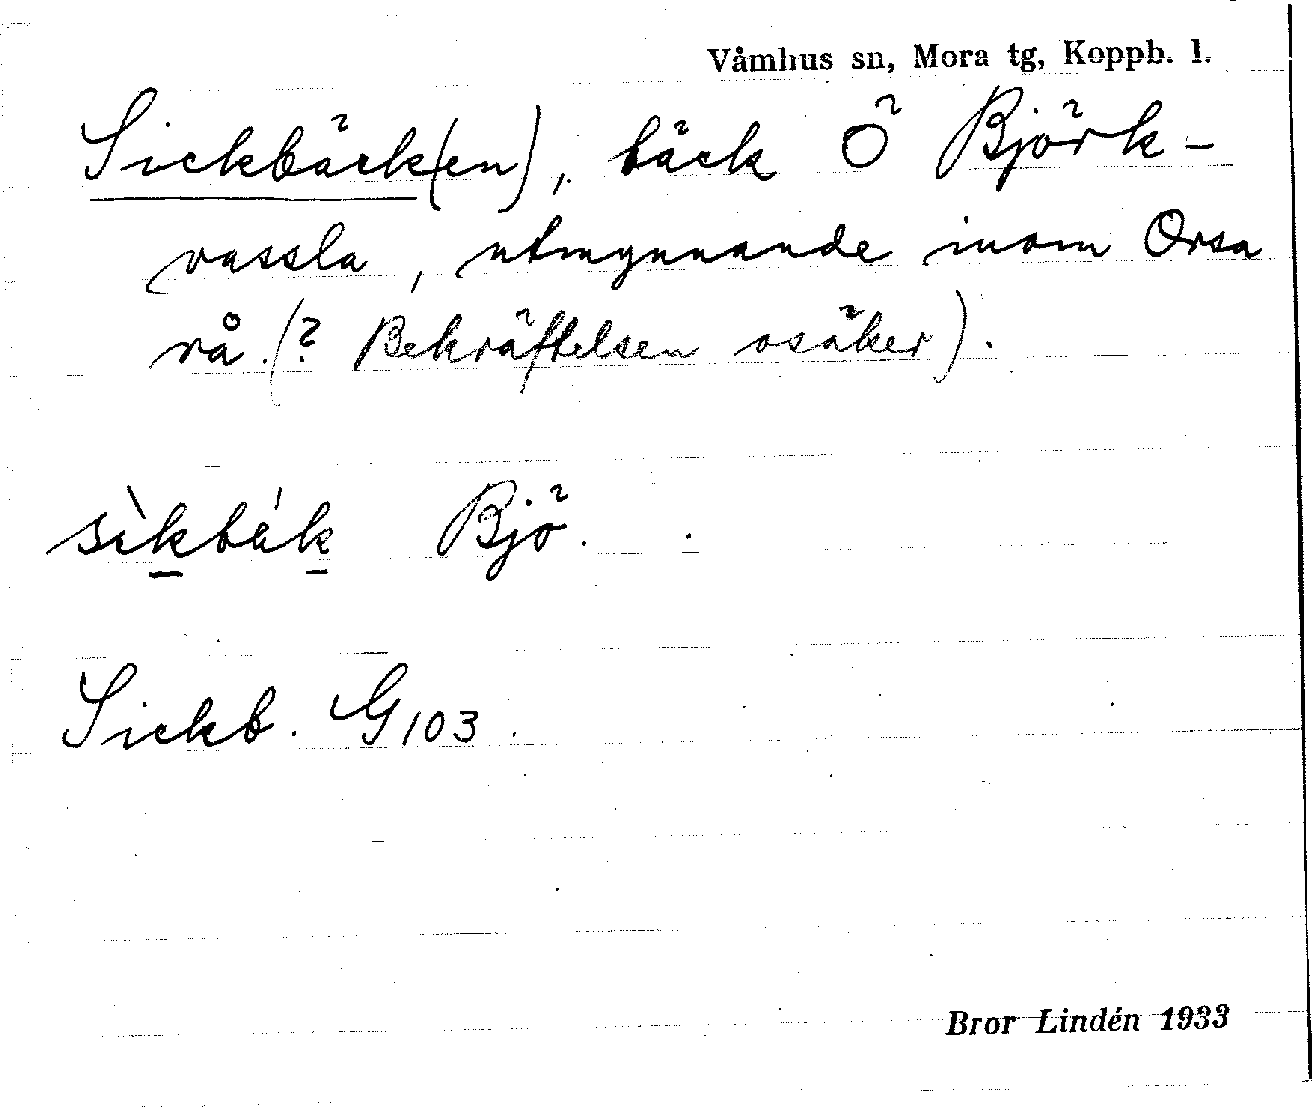 Våmhus sn, Mora tg, Koppb. l.
Sickbäck(en), bäck Ö Björk-
vassla, utmynnande inom Orsa
rå. (? Bekräftelsen osäker).
sìkbák Bjö.
Sickb. G103.
Bror Lindén 1933